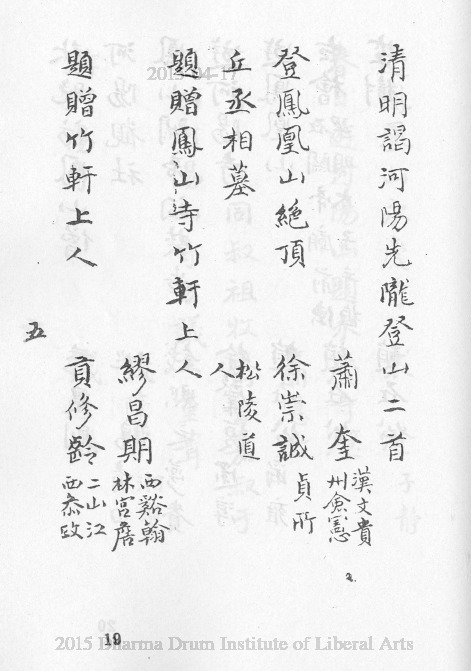 清明謁河陽先隴登山二首
蕭奎 漢文貴州僉憲
登鳳凰山絕頂
徐崇誠 貞所
丘丞相墓
松陵道人
題贈鳳山寺竹軒上人
繆昌期 西谿翰林宮詹
題贈竹軒上人
貢修齡 二山江西叅政
五
19
2015 Dharma Drum Institute of Liberal Arts